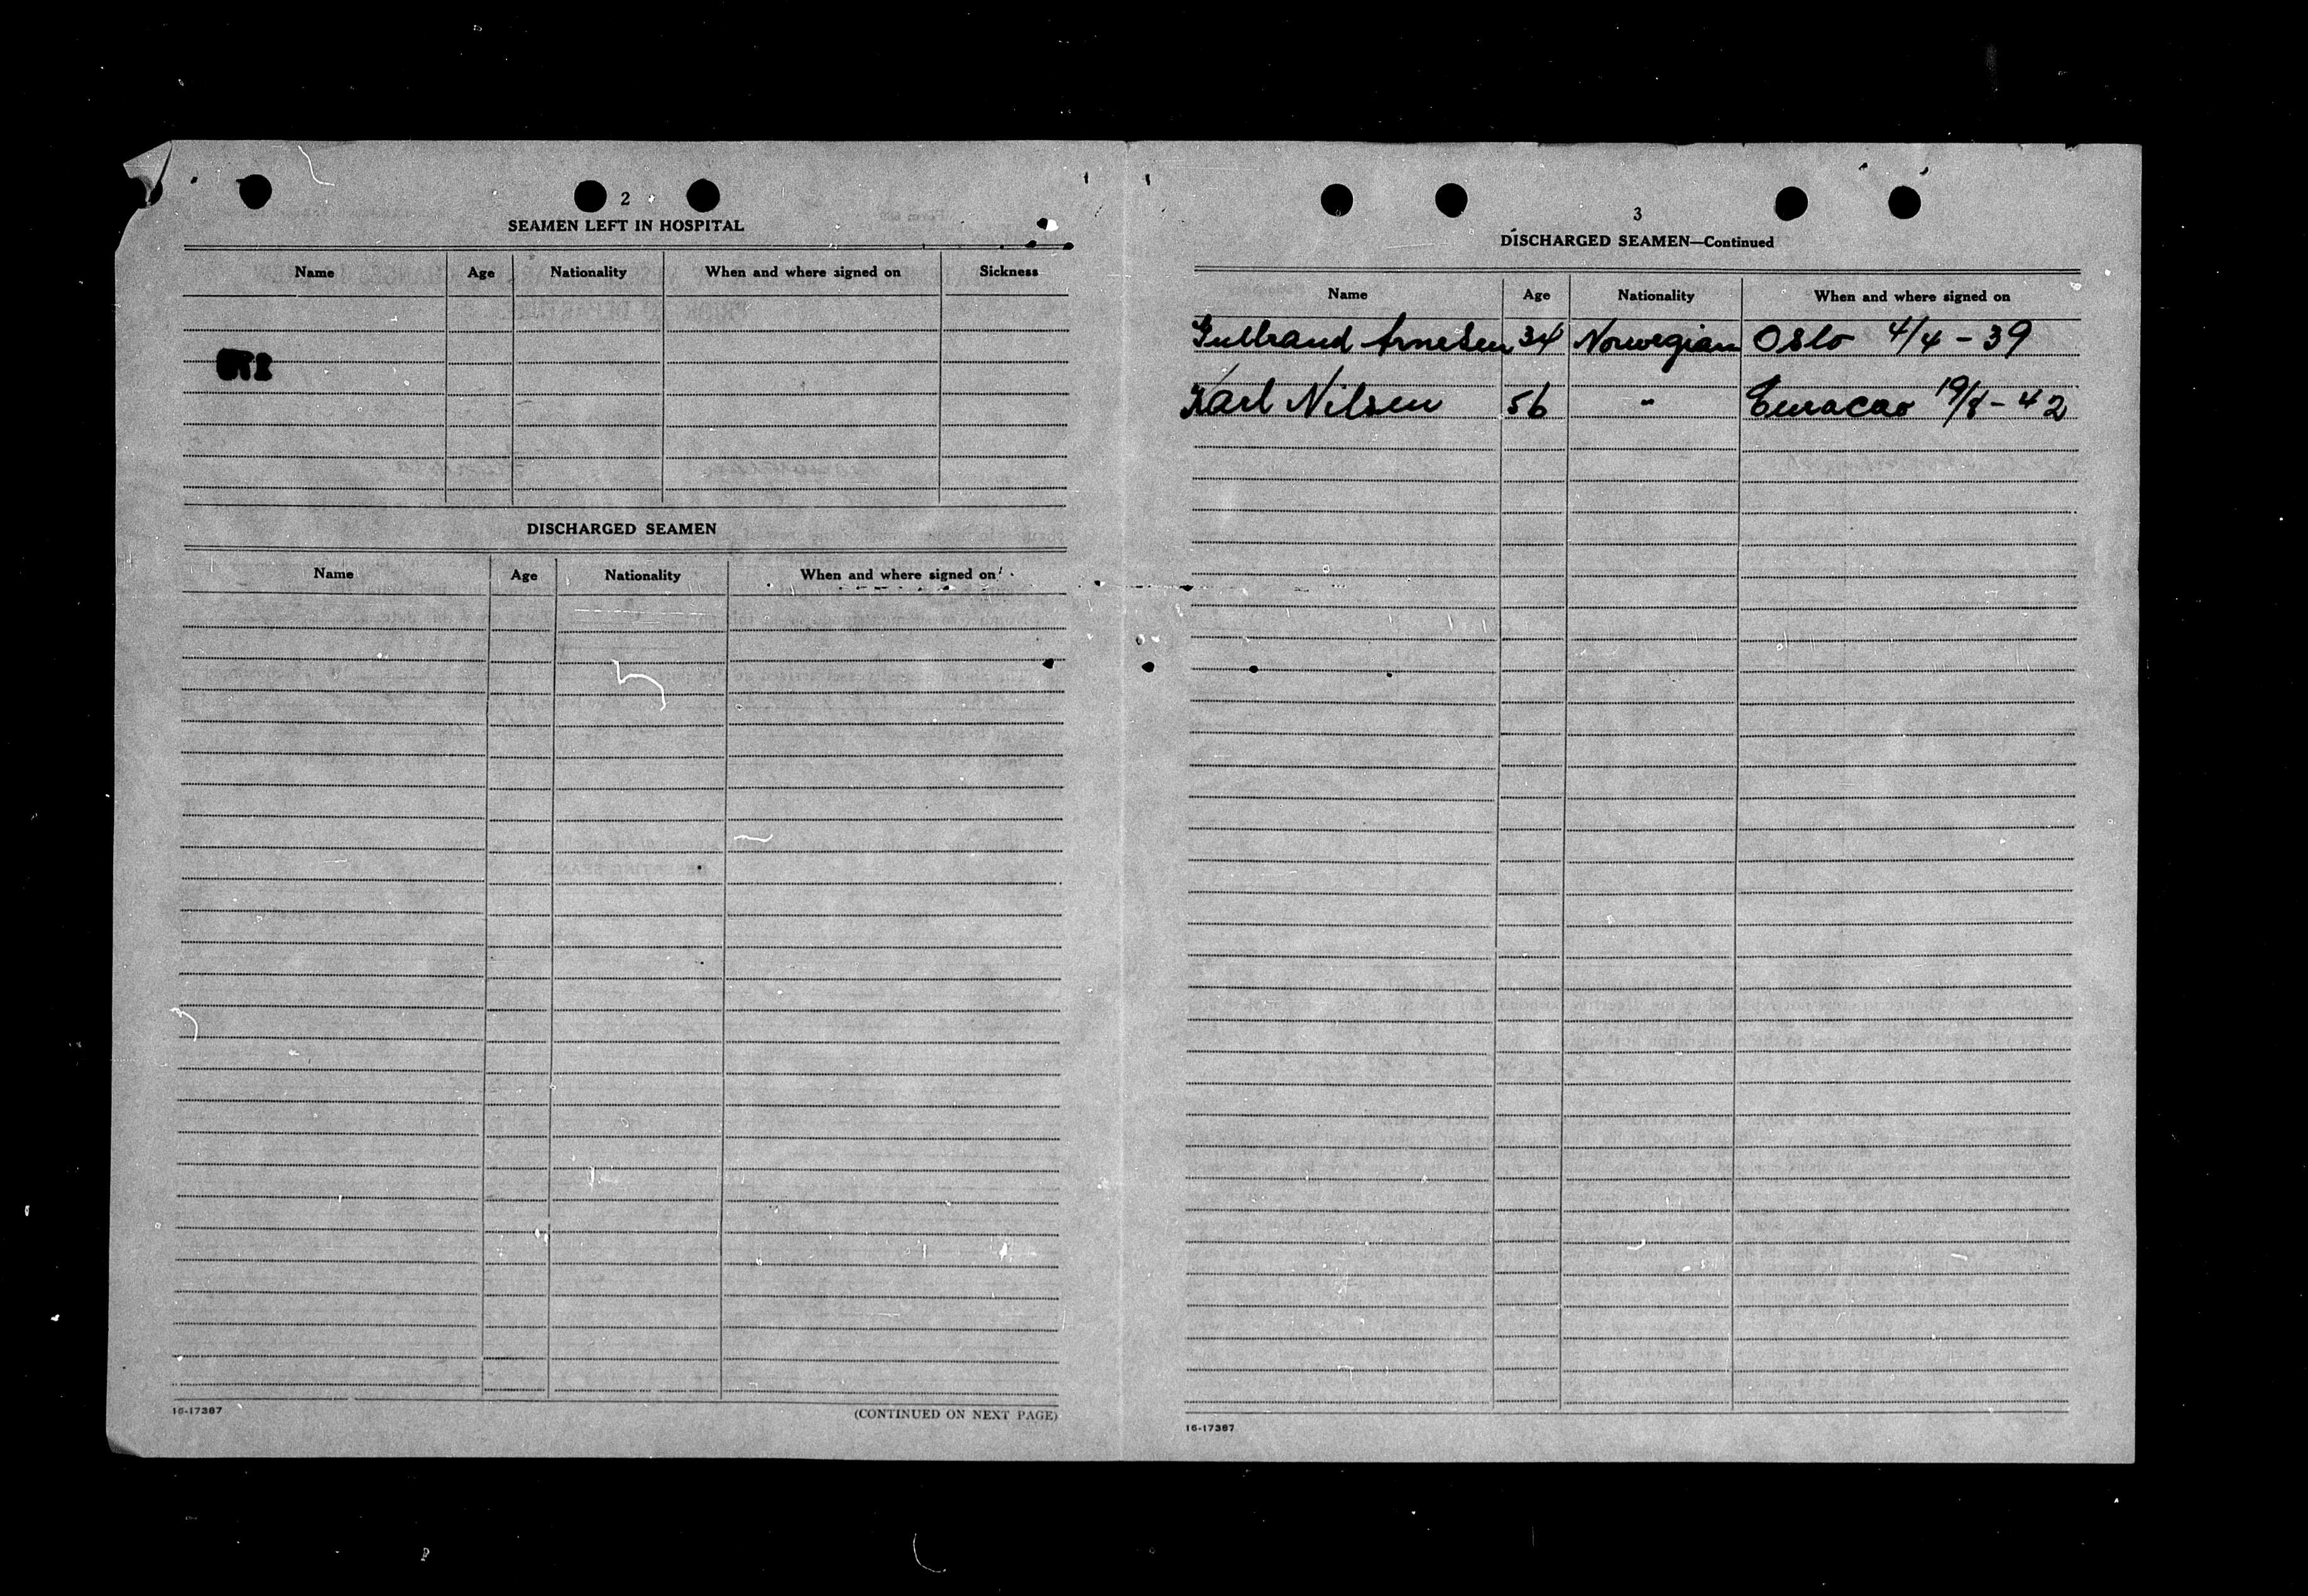 2
SEAMEN LEFT IN HOSPITAL
Name Age Nationality When and where signed on Sickness
DISCHARGED SEAMEN
Name Age Nationality When and where signed on
16-17387
(CONTINUED ON NEXT PAGE)
3
DISCHARGED SEAMEN—Continued
Name Age Nationality When and where signed on
Gulbrand Arnesen 34 Norwegian Oslo 4/4 - 39
Karl Nilsen 56 " Curacao 19/8 - 42
16-17387